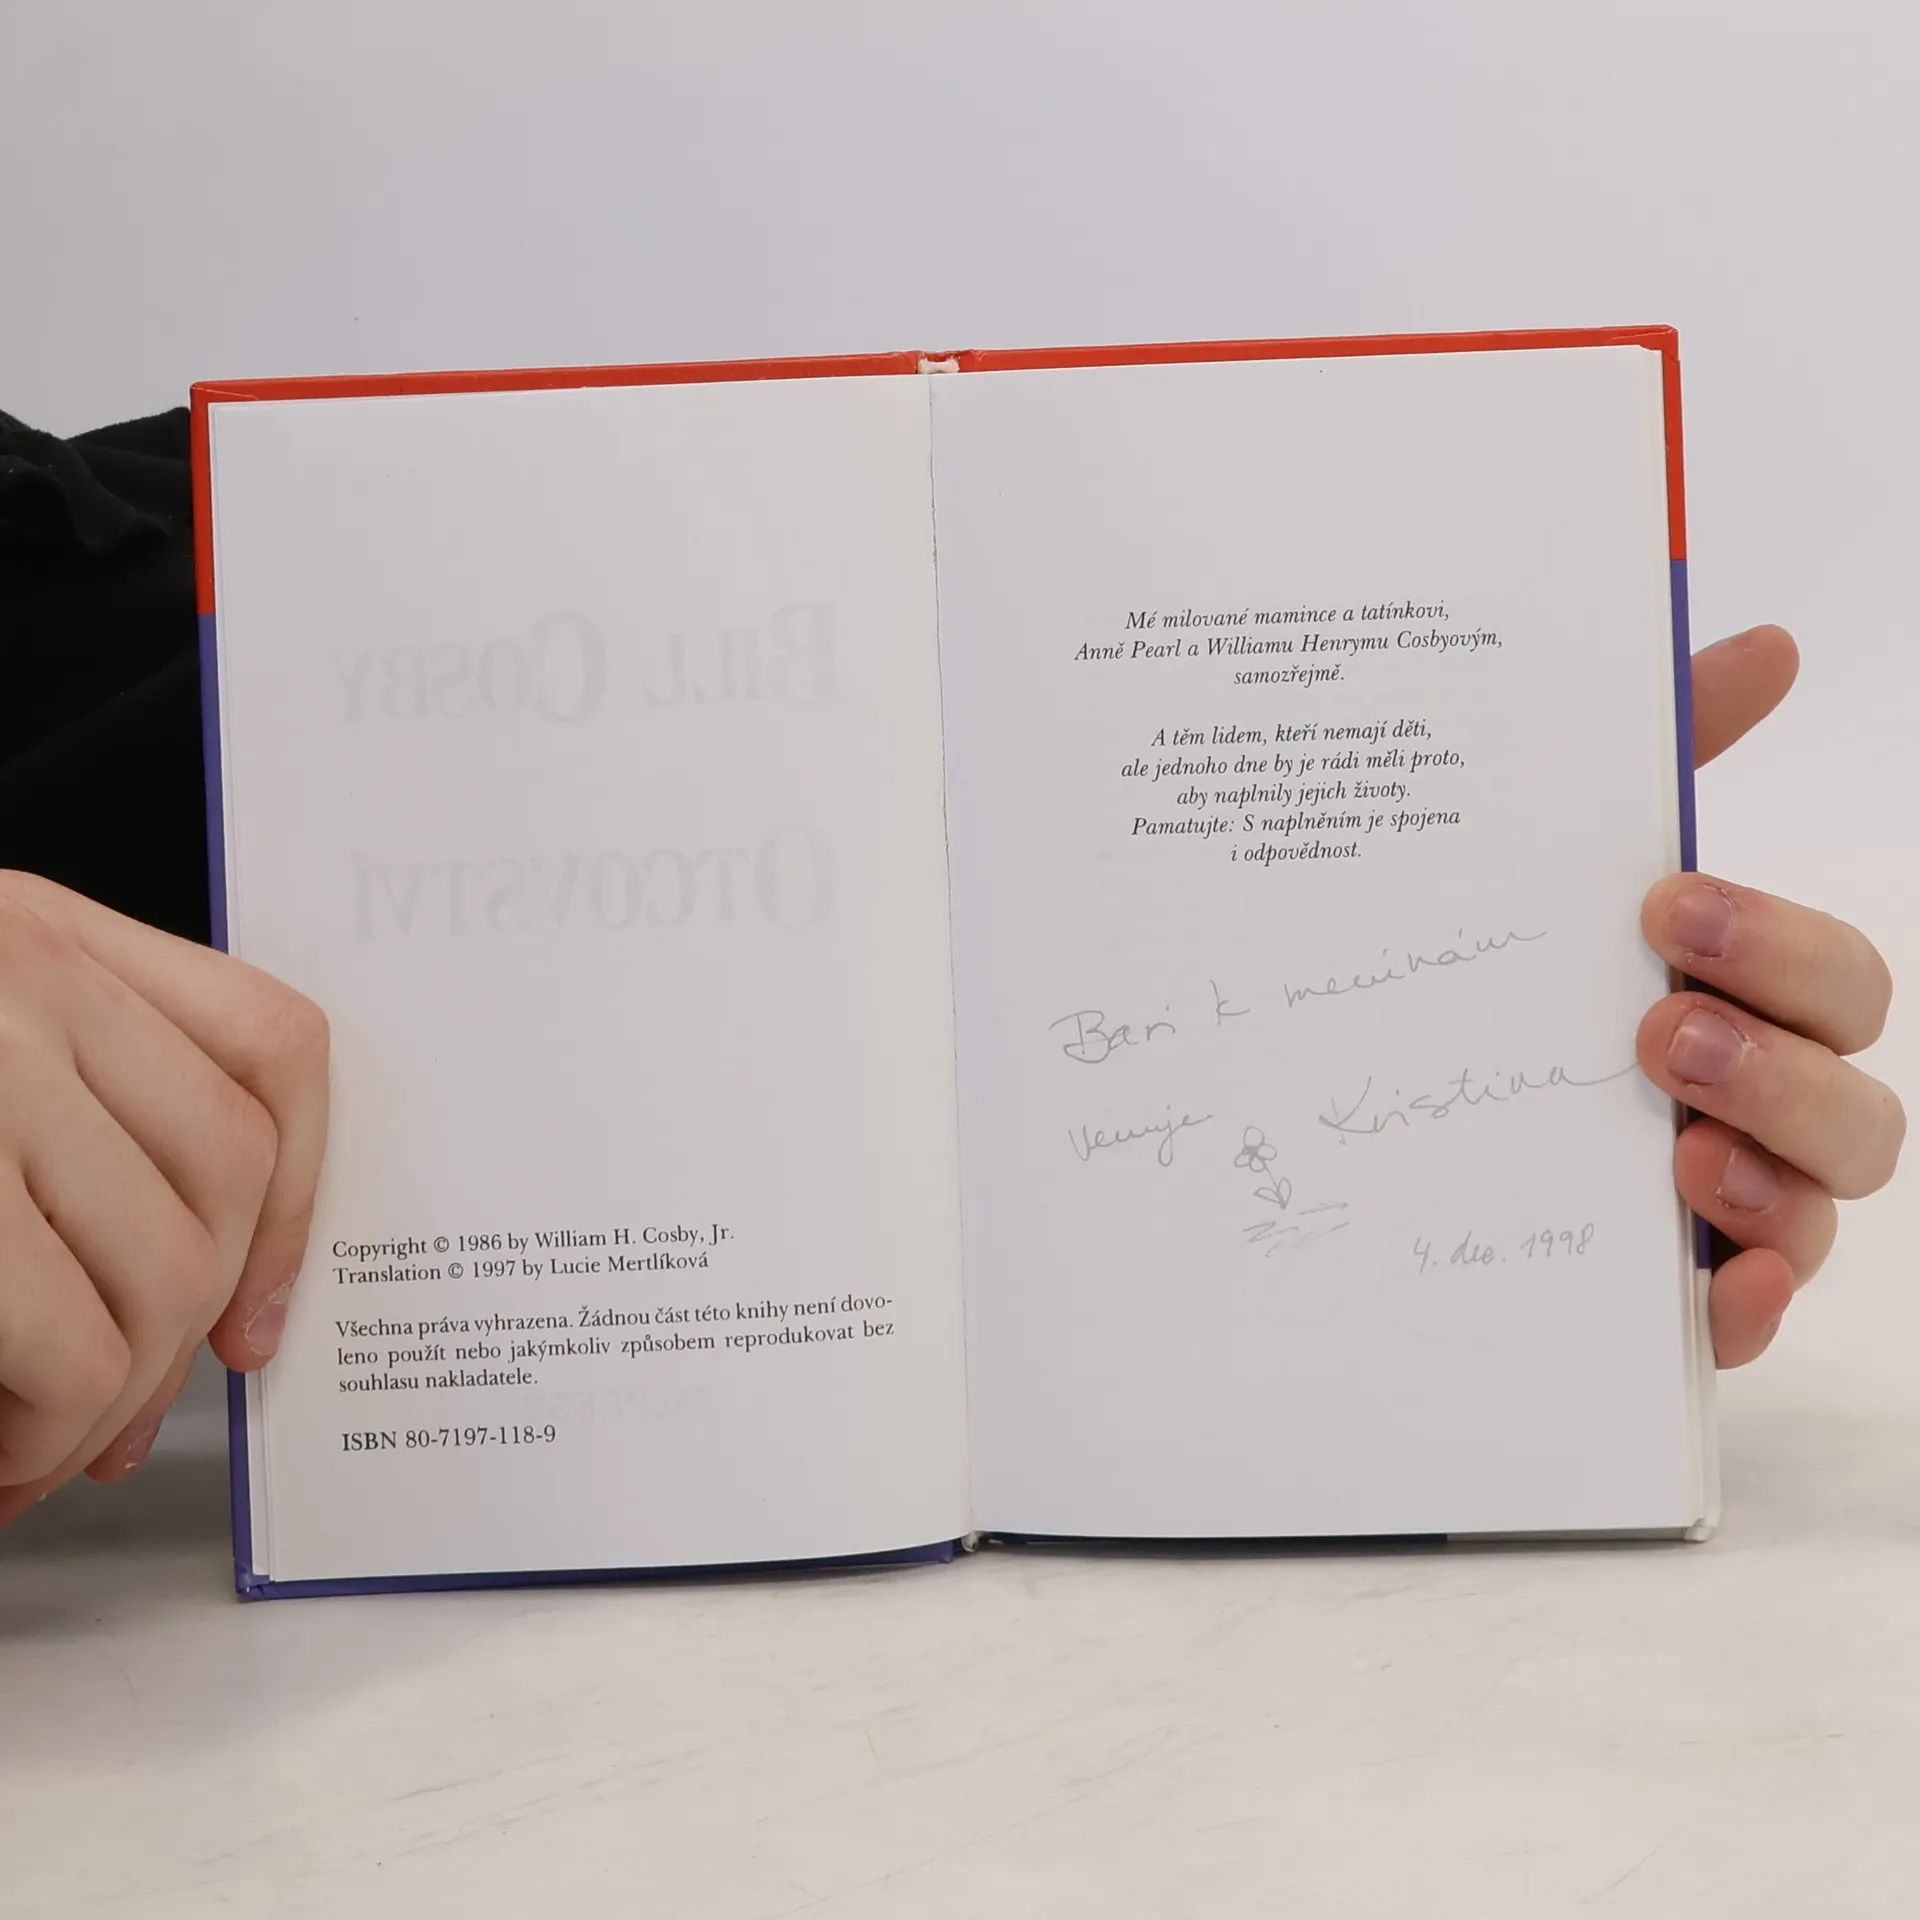 BILL COSBY
OTCOVSTVÍ
Copyright © 1986 by William H. Cosby, Jr.
Translation © 1997 by Lucie Mertlíková
Všechna práva vyhrazena. Žádnou část této knihy není dovo-
leno použít nebo jakýmkoliv způsobem reprodukovat bez
souhlasu nakladatele.
ISBN 80-7197-118-9
Mé milované mamince a tatínkovi,
Anně Pearl a Williamu Henrymu Cosbyovým,
samozřejmě.
A těm lidem, kteří nemají děti,
ale jednoho dne by je rádi měli proto,
aby naplnily jejich životy.
Pamatujte: S naplněním je spojena
i odpovědnost.
Bari k meninám
venuje Kristina
4. dec. 1998